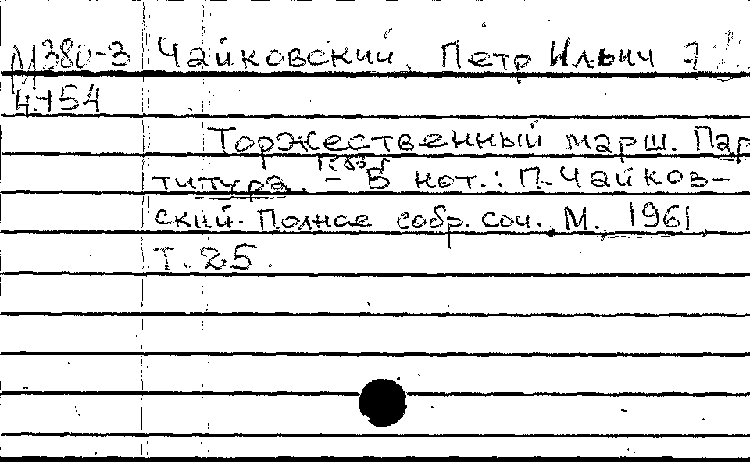 М380-3 Чайковский, Петр Ильич
Ч-154
Торжественный марш. Пар
титура. – В нот.: П. Чайков-
ский. Полное собр. соч. М., 1961,
т. 25.